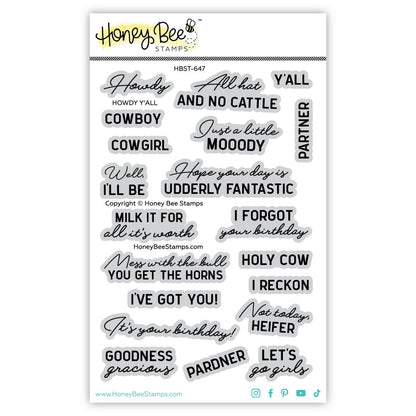 Honey Bee™
STAMPS
HBST-647
Howdy
HOWDY Y'ALL
All hat
AND NO CATTLE
Y'ALL
COWBOY
COWGIRL
Just a little
MOOODY
PARTNER
Well,
I'LL BE
Hope your day is
UDDERLY FANTASTIC
Copyright © Honey Bee Stamps
MILK IT FOR
all it's worth
I FORGOT
your birthday
HoneyBeeStamps.com
Mess with the bull
YOU GET THE HORNS
HOLY COW
I RECKON
I'VE GOT YOU!
It's your birthday!
Not today,
HEIFER
GOODNESS
gracious
PARDNER
LET'S
go girls
www.HoneyBeeStamps.com